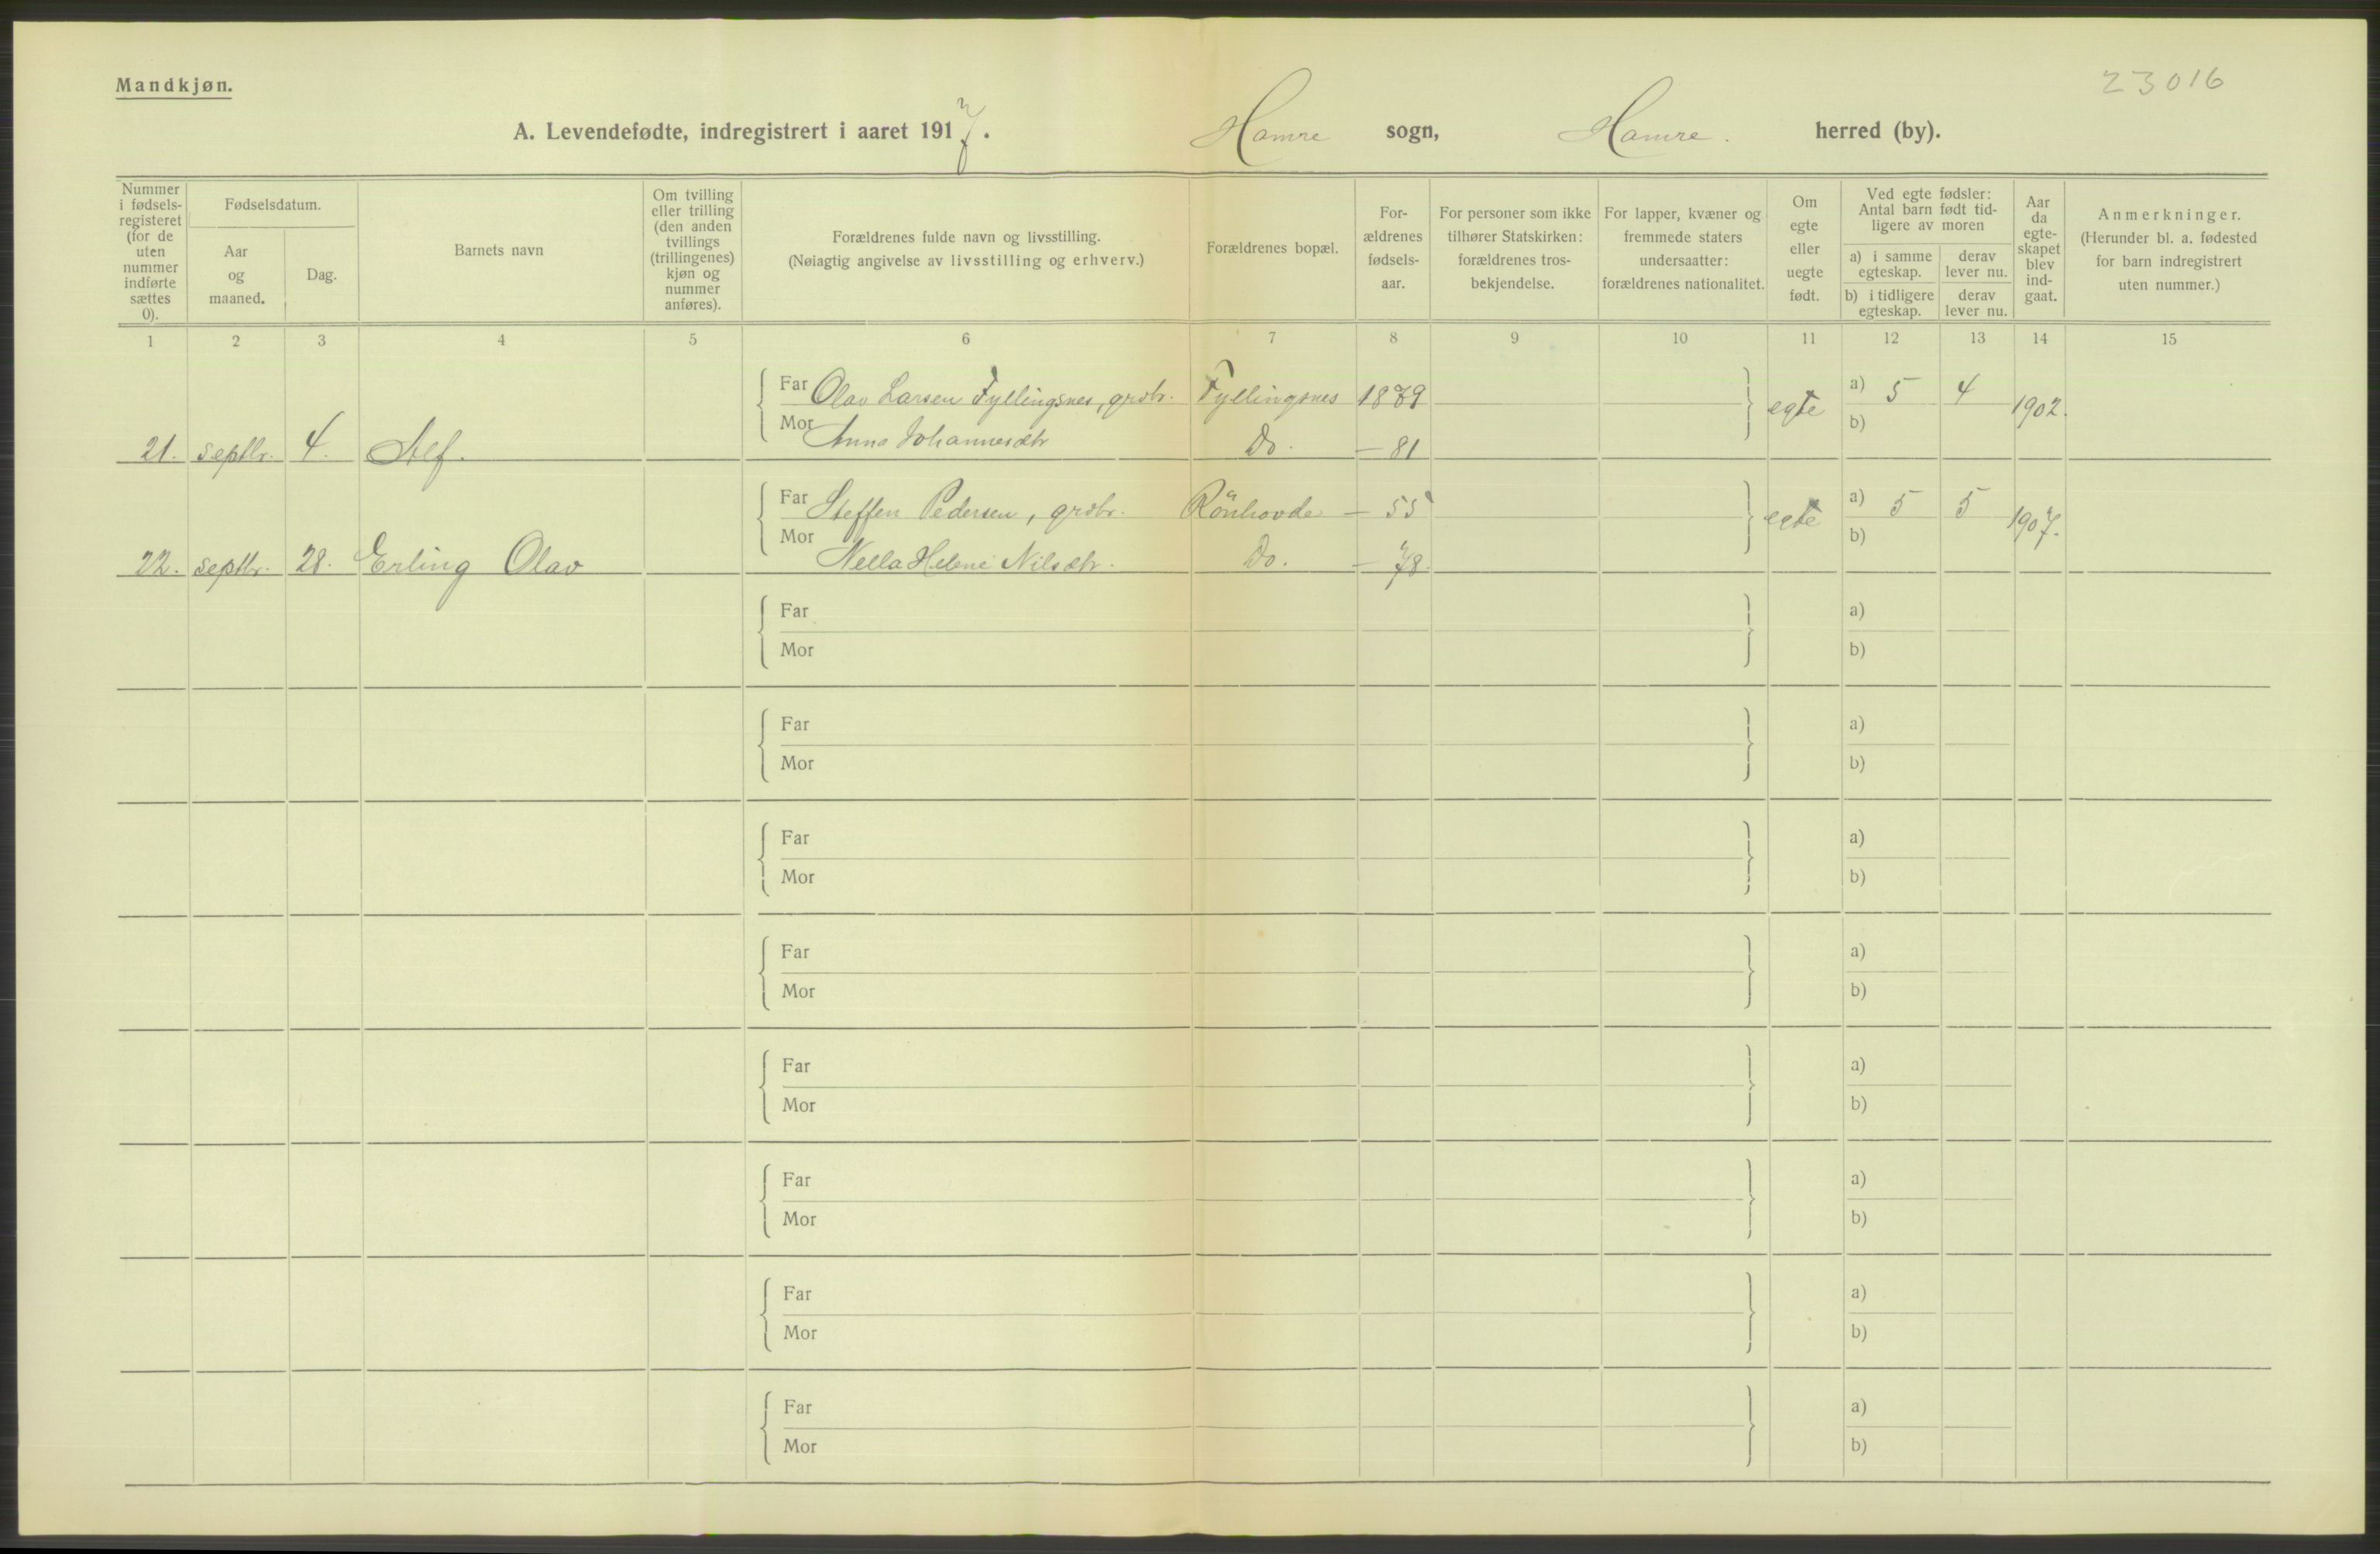 Mandkjøn.
23016
A. Levendefødte, indregistrert i aaret 1917. Hamre sogn, Hamre. herred (by).
Nummer i fødselsregisteret (for de uten nummer indførte sættes 0).
Fødselsdatum.
Aar og maaned.
Dag.
Barnets navn
Om tvilling eller trilling (den anden tvillings (trillingenes) kjøn og nummer anføres).
Forældrenes fulde navn og livsstilling.
(Nøiagtig angivelse av livsstilling og erhverv.)
Forældrenes bopæl.
Forældrenes fødselsaar.
For personer som ikke tilhører Statskirken: forældrenes trosbekjendelse.
For lapper, kvæner og fremmede staters undersaatter: forældrenes nationalitet.
Om egte eller uegte født.
Ved egte fødsler: Antal barn født tidligere av moren
a) i samme egteskap.
derav lever nu.
b) i tidligere egteskap.
derav lever nu.
Aar da egteskapet blev indgaat.
Anmerkninger.
(Herunder bl. a. fødested for barn indregistrert uten nummer.)
1 2 3 4 5 6 7 8 9 10 11 12 13 14 15
Far Olav Larsen Fyllingsnes, grdbr. Fyllingsnes 1879 egte a) 5 4 1902.
21. septbr. 4. Alf. Mor Anna Johannesdtr Do. — 81 b)
Far Steffen Pedersen, grdbr. Rönhovde — 55 egte a) 5 5 1907.
22. septbr. 28. Erling Olav Mor Nella Helene Nilsdtr. Do. — 78. b)
Far a)
Mor b)
Far a)
Mor b)
Far a)
Mor b)
Far a)
Mor b)
Far a)
Mor b)
Far a)
Mor b)
Far a)
Mor b)
Far a)
Mor b)